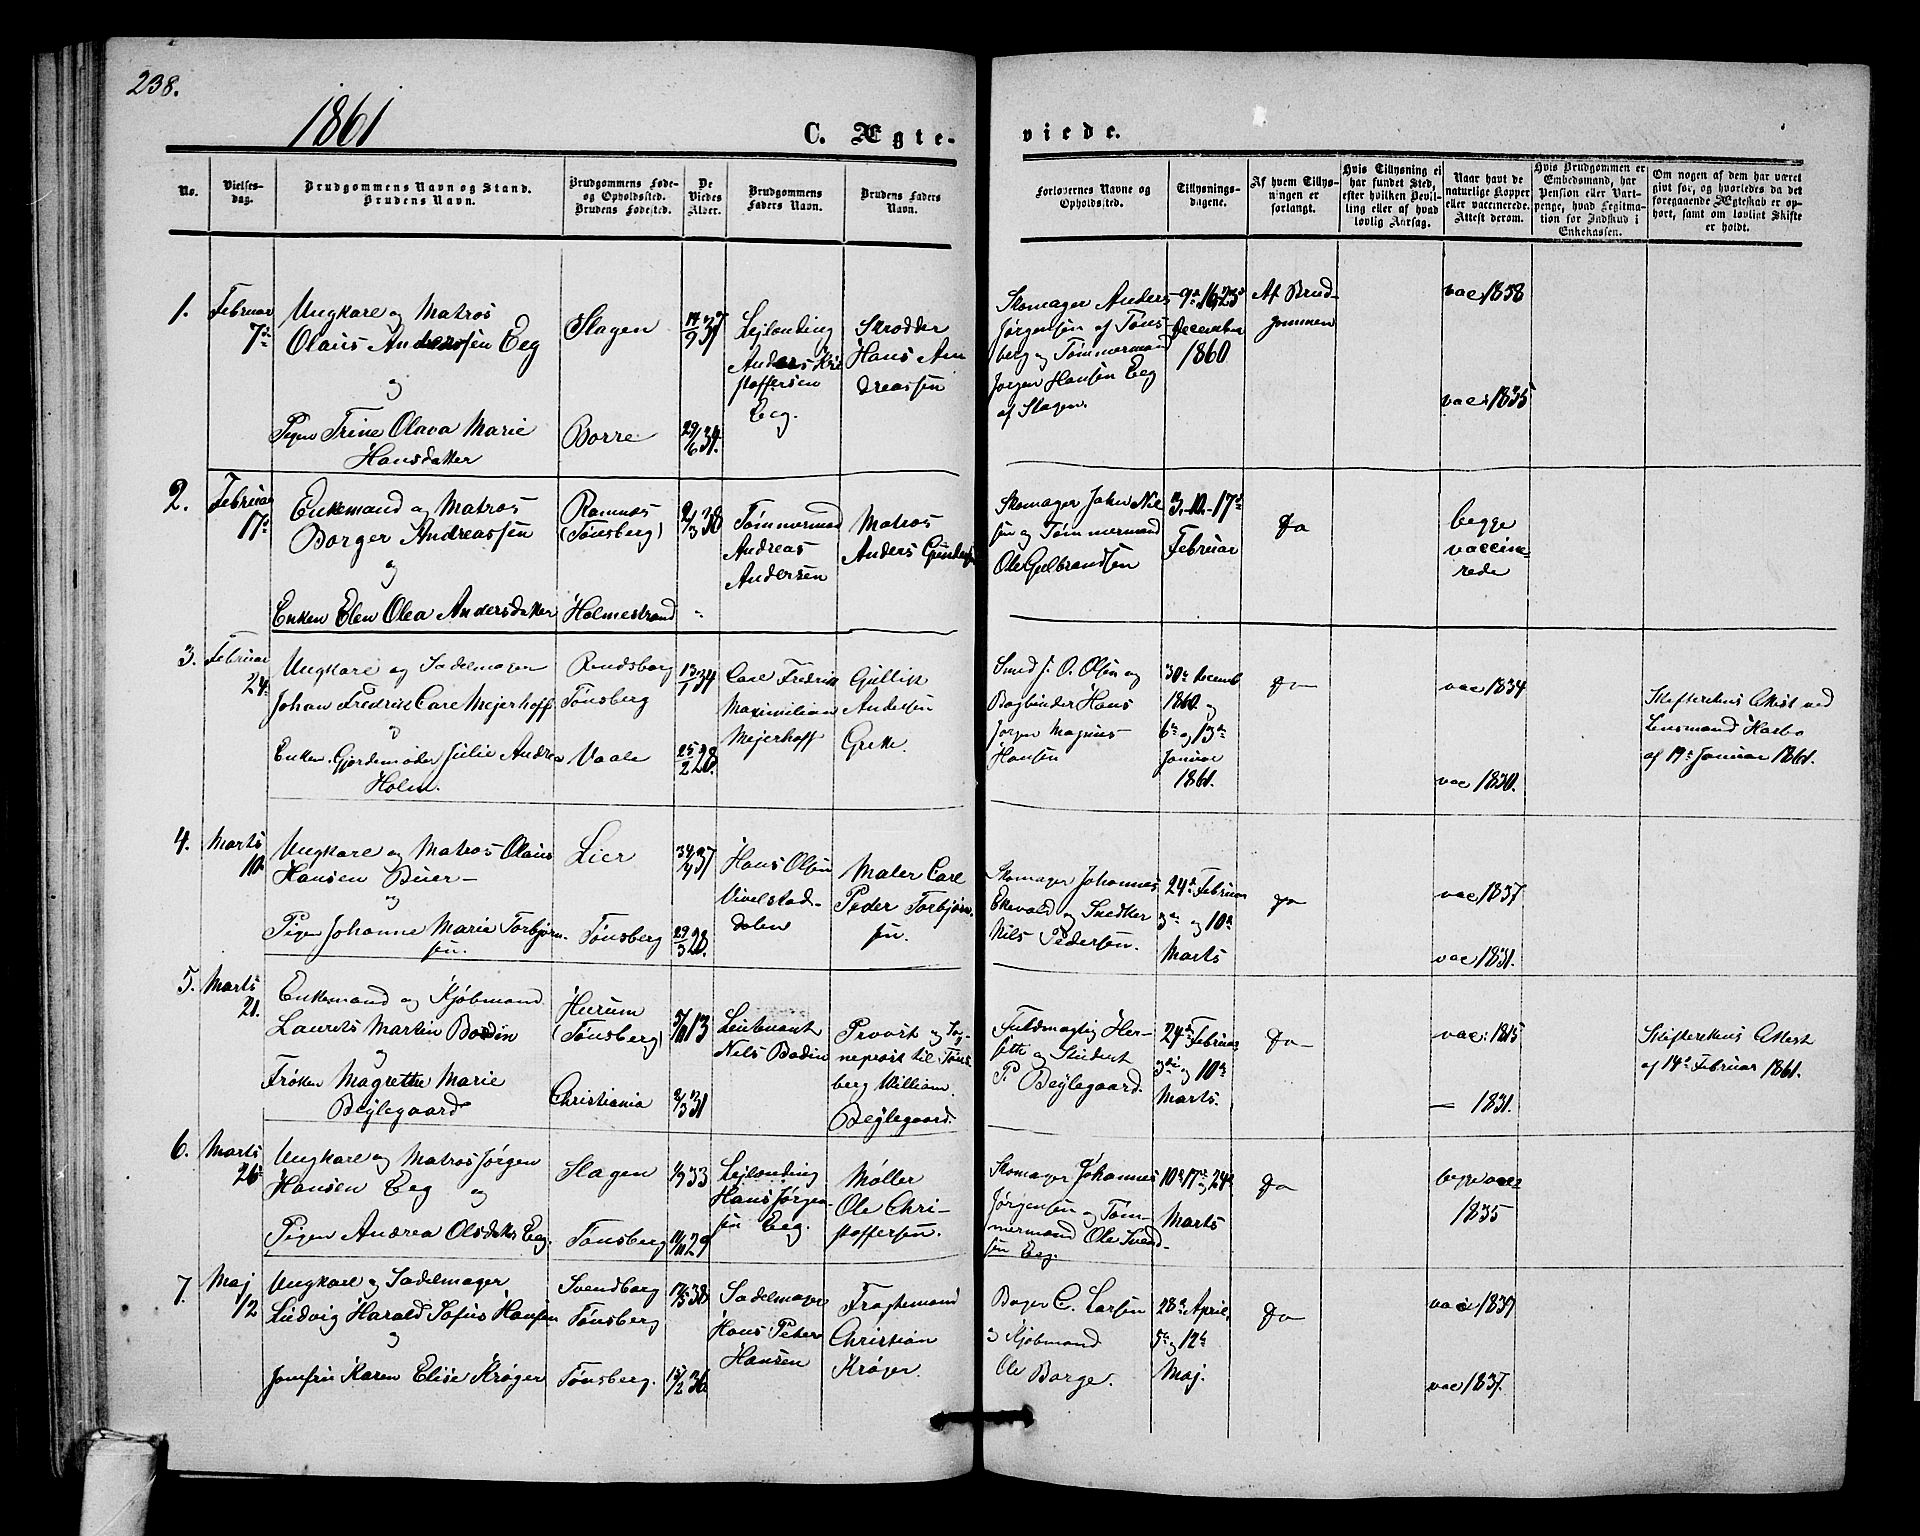 238.
1861
C. Ægte-
viede.
No.
Vielses-
dag.
Brudgommens Navn og Stand.
Brudens Navn.
Brudgommens Føde-
og Opholdssted.
Brudens Fødested.
De
Viedes
Alder.
Brudgommens
Faders Navn.
Brudens Faders
Navn.
Forlovernes Navne og
Opholdssted.
Tillysnings-
dagene.
Af hvem Tillys-
ningen er
forlangt.
Hvis Tillysning ei
har fundet Sted,
efter hvilken Bevil-
ling eller af hvad
lovlig Aarsag.
Naar havt de
naturlige Kopper
eller vaccinerede.
Attest derom.
Hvis Brudgommen er
Embedsmand, har
Pension eller Vart-
penge, hvad Legitma-
tion for Indskud i
Enkekassen.
Om nogen af dem har været
gift før, og hvorledes da det
foregaaende Ægteskab er op-
hørt, samt om lovligt Skifte
er holdt.
1.
Februar
7de
Ungkarl og Matros
Olaus Anderssen Eeg
og
Pigen Trine Olava Marie
Hansdatter
Slagen
Borre
29/6 34.
Lejlending
Anders Kri
stoffersen
Eeg.
Skrædder
Hans An
dreassen
Skomager Anders
Jørgensen af Tøns-
berg og Tømmermand
Jørgen Hansen Eeg
af Slagen.
9de 16 23de
December
1860
Af Brud-
gommen
vac 1858
vac 1835
2.
Februar
17de
Enkemand og Matros
Borger Andreassen
og
Enken Elen Olea Andersdatter
Ramnæs
(Tønsberg)
Holmestrand
Tømmermand
Andreas
Andersen
Matros
Anders Gunders
Skomager John Nil
sen og Tømmermand
Ole Gulbrandsen
3.-10.-17de
Februar
Do
begge
vaccine-
rede
3.
Februar
24.
Ungkarl og Sadelmager
Johan Fredrik Carl Mejerhoff
og
Enken Gjordemoder Julie Andrea
Holm.
Rendsborg
Tønsberg
Vaale
13/1 34
25/2 28.
Carl Fredrik
Maximilian
Mejerhoff
Gullik
Andersen
Greke.
Smed J. O. Olsen og
Bogbinder Hans
Jørgen Magnus
Hansen
30te Decemb
1860 og
6te og 13de
Januar
1861.
Do
vac 1834
vac 1830.
Skifterettens Attest ved
Lensmand Hasbo
af 17de Januar 1861.
4.
Marts
10.
Ungkarl og Matros Olaus
Hansen Buer
og
Pigen Johanne Marie Torbjørn-
sen.
Lier
Tønsberg
29/3 28.
Hans Olsen
Vivelstad-
dalen
Maler Carl
Peder Torbjørn-
sen.
Skomager Johannes
Ekevald og Snedker
Nils Pedersen.
24de Februar
3die og 10de
Marts
Do
vac 1837
vac 1831.
5.
Marts
21.
Enkemand og Kjøbmand
Laurets Martin Bodin
og
Frøken Magrethe Marie
Bejlegaard
Hurum
(Tønsberg)
Christiania
Leutenant
Nils Bodin
Provst og Sog-
neprest til Tøns
berg William
Bejlegaard.
Fuldmægtig Her-
seth og Student
P. Bejlegaard.
24de Februar
3die og 10de
Marts.
Do
vac: 1815
— 1831.
Skifterettens Attest
af 14de Februar 1861.
6.
Marts
26de
Ungkarl og Matros Jørgen
Hansen Eeg og
Pigen Andrea Olsdatter Eeg.
Slagen
Tønsberg
Lejlending
Hans Jørgen-
sen Eeg.
Møller
Ole Chri-
stoffersen.
Skomager Johannes
Jørgensen og Tøm-
mermand Ole Svend-
sen Eeg.
10de 17de og 24de
Marts
Do
begge vac
1835
7.
Maj
12
Ungkarl og Sadelmager
Ludvig Harald Sofus Hansen
og
Jomfru Karen Elise Krøger
Svendborg
Tønsberg
Tønsberg.
17/5 38
15/2 36
Sadelmager
Hans Peter
Hansen
Fragtemand
Christian
Krøger.
Bager C. Larsen
og Kjøbmand
Ole Borge.
28de April,
5te og 12te
Maj.
Do
vac 1839
vac 1837.